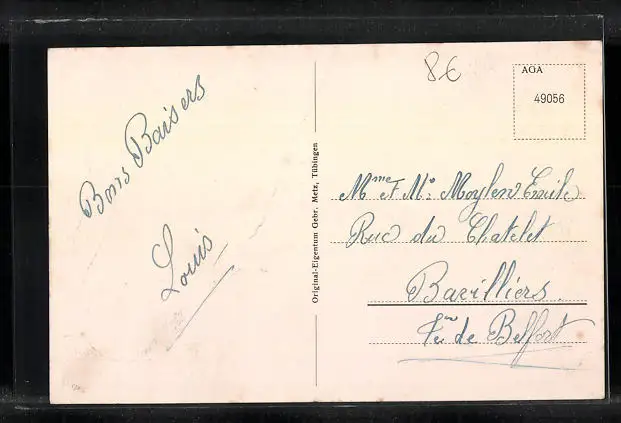 Bons Baisers
Louis
Original-Eigentum Gebr. Metz, Tübingen
8€
AGA
49056
Mme et Mr Emile
Rue du Chatelet
Bavilliers
Tre de Belfort